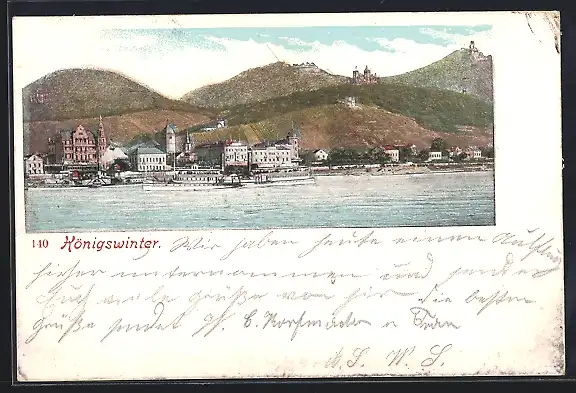 140 Königswinter. Wir haben heute einen Ausflug
hierher unternommen und senden
Euch viele Grüße von hier die besten
Grüße sendet C. Korfmacher u Frau
W. S.